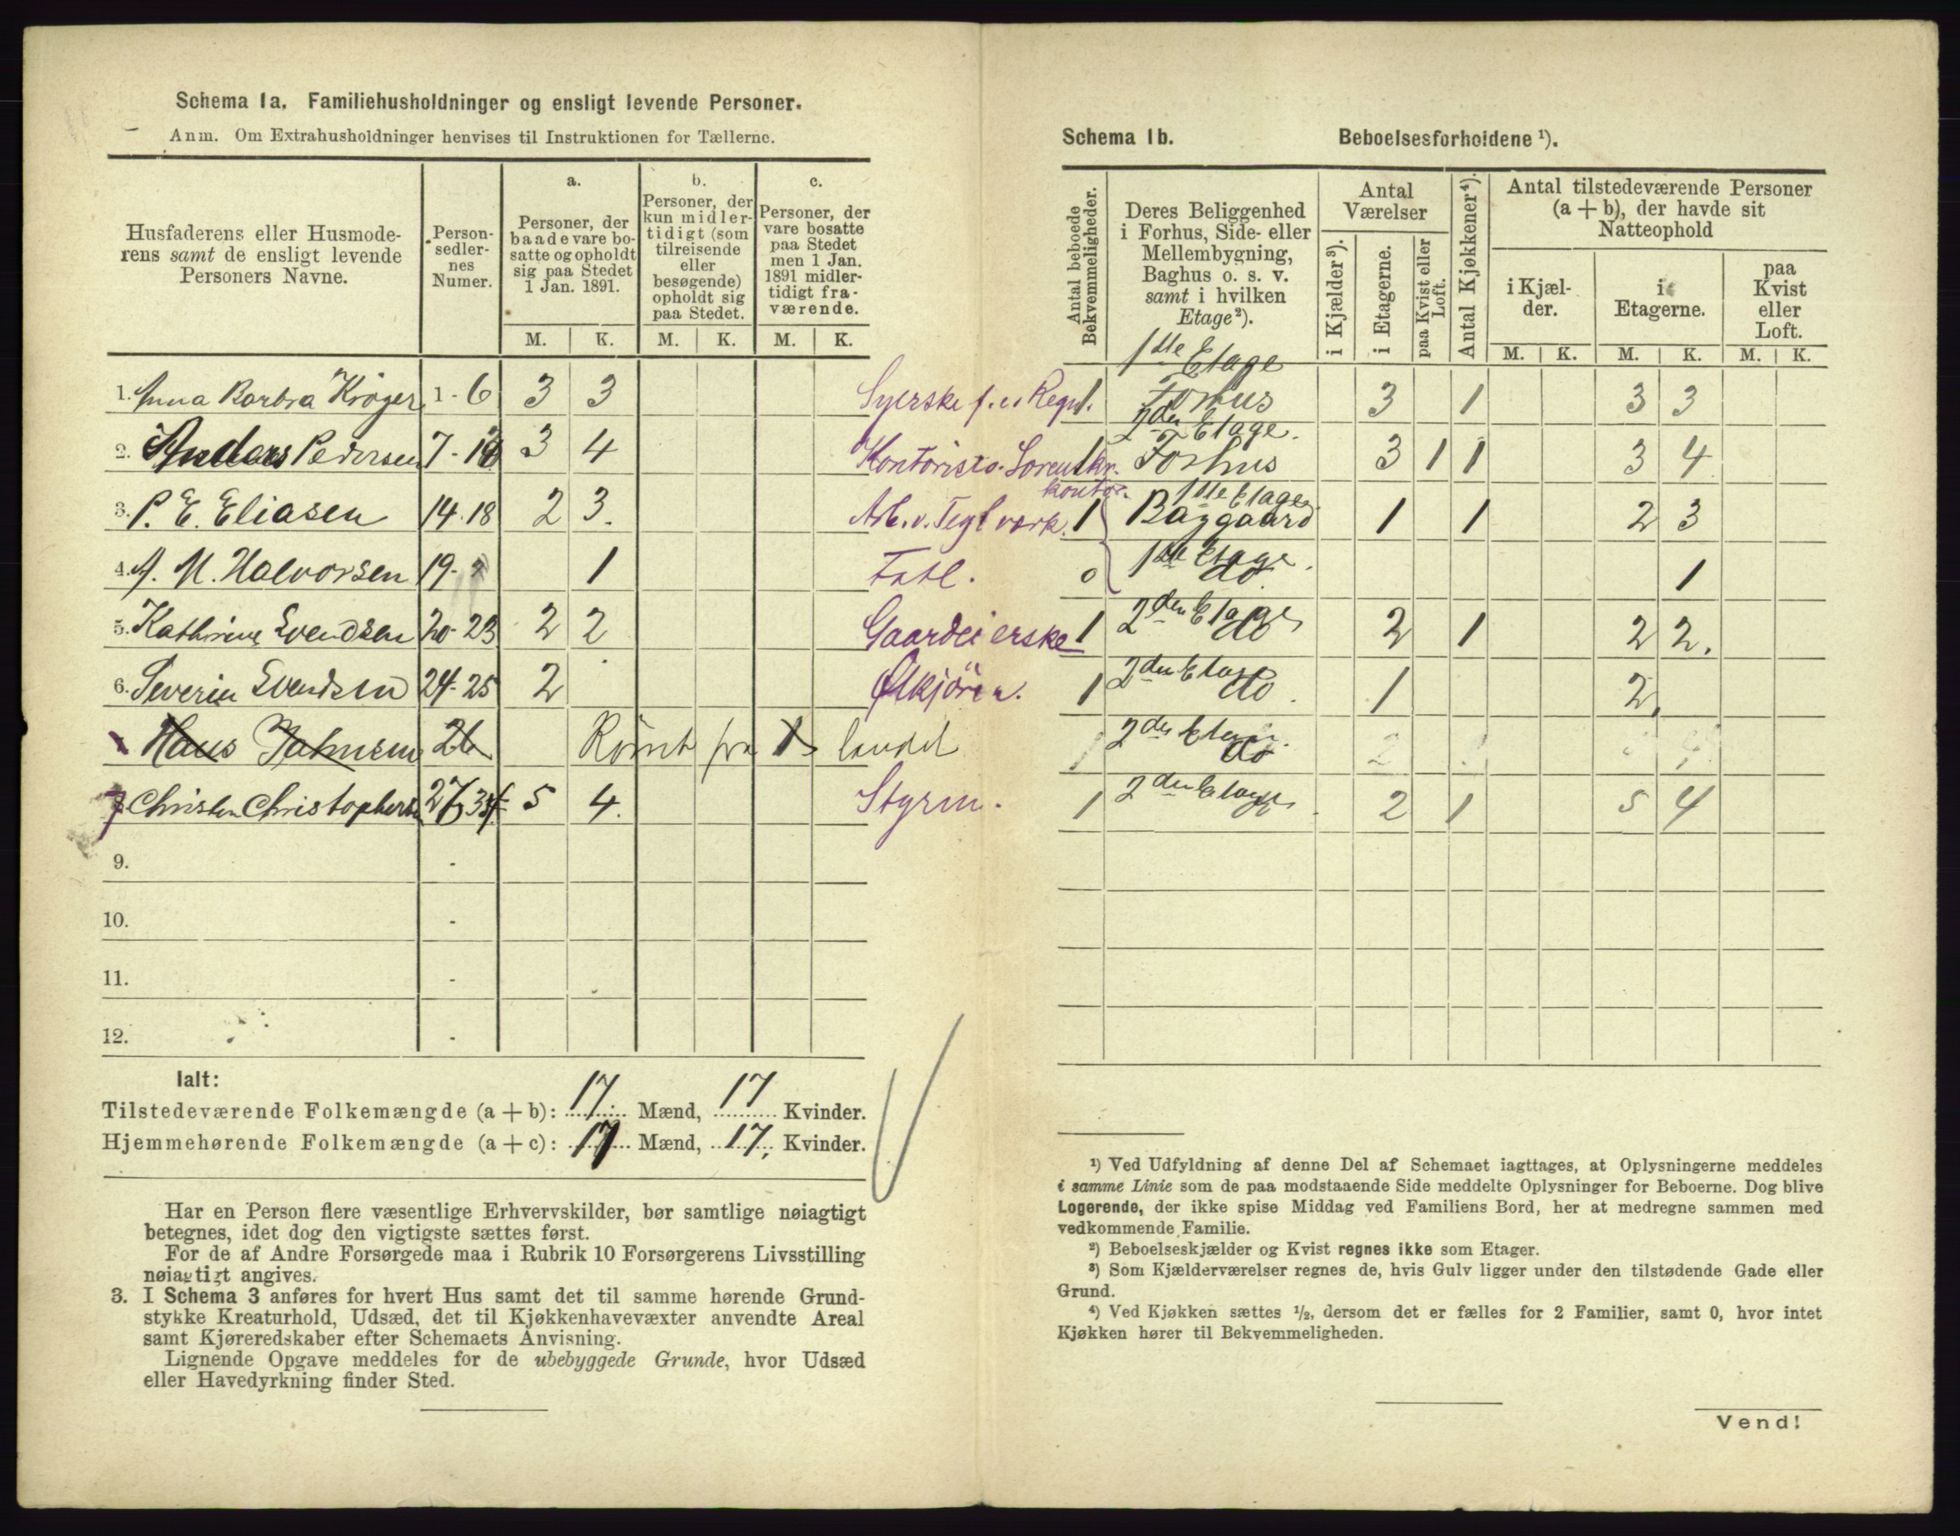 Schema 1a. Familiehusholdninger og ensligt levende Personer.
Anm. Om Extrahusholdninger henvises til Instruktionen for Tællerne.
Husfaderens eller Husmoderens samt de ensligt levende Personers Navne.
Personsedlernes Numer.
a. Personer, der baade vare bosatte og opholdt sig paa Stedet 1 Jan. 1891.
b. Personer, der kun midlertidigt (som tilreisende eller besøgende) opholdt sig paa Stedet.
c. Personer, der vare bosatte paa Stedet men 1 Jan. 1891 midlertidigt fraværende.
M. K. M. K. M. K.
1. Anna Barbra Krøger 1 - 6 3 3 Syerske f. e. Regn.
2. Anders Pedersen 7 - 13 3 4 Kontorist o. Sorenskr. kontor.
3. P. E. Eliasen 14 - 18 2 3. Arb. v. Teglværk.
4. A. M. Halvorsen 19 - 1 Fatl.
5. Kathrine Svendsen 20 - 23 2 2 Gaardeierske
6. Severin Svendsen 24 - 25 2 Ølkjører.
Hans 26 Rømt fra landet
7 Christen Christophersen 27 - 35 5 4. Styrm.
9. -
10. -
11. -
12. -
Ialt:
Tilstedeværende Folkemængde (a + b): 17 Mænd, 17 Kvinder.
Hjemmehørende Folkemængde (a + c): 17 Mænd, 17, Kvinder.
Har en Person flere væsentlige Erhvervskilder, bør samtlige nøiagtigt
betegnes, idet dog den vigtigste sættes først.
For de af Andre Forsørgede maa i Rubrik 10 Forsørgerens Livsstilling
nøiagtigt angives.
3. I Schema 3 anføres for hvert Hus samt det til samme hørende Grund-
stykke Kreaturhold, Udsæd, det til Kjøkkenhavevæxter anvendte Areal
samt Kjøreredskaber efter Schemaets Anvisning.
Lignende Opgave meddeles for de ubebyggede Grunde, hvor Udsæd
eller Havedyrkning finder Sted.
Schema 1b. Beboelsesforholdene ¹).
Antal beboede Bekvemmeligheder.
Deres Beliggenhed i Forhus, Side- eller Mellembygning, Baghus o. s. v. samt i hvilken Etage²).
Antal Værelser
i Kjælder³). i Etagerne. paa Kvist eller Loft.
Antal Kjøkkener⁴).
Antal tilstedeværende Personer (a + b), der havde sit Natteophold
i Kjælder. i Etagerne. paa Kvist eller Loft.
M. K. M. K. M. K.
1 1ste Etage Forhus 3 1 3 3
1 2den Etage. Forhus 3 1 1 3 4
1 1ste Etage Baggaard 1 1 2 3
0 1ste Etage do 1
1 2den Etage do 2 1 2 2.
1 2den Etage do 1 2.
1 2den Etage. do 2
1 2den Etage 2 1 5 4
¹) Ved Udfyldning af denne Del af Schemaet iagttages, at Oplysningerne meddeles
i samme Linie som de paa modstaaende Side meddelte Oplysninger for Beboerne. Dog blive
Logerende, der ikke spise Middag ved Familiens Bord, her at medregne sammen med
vedkommende Familie.
²) Beboelseskjælder og Kvist regnes ikke som Etager.
³) Som Kjælderværelser regnes de, hvis Gulv ligger under den tilstødende Gade eller
Grund.
⁴) Ved Kjøkken sættes ½, dersom det er fælles for 2 Familier, samt 0, hvor intet
Kjøkken hører til Bekvemmeligheden.
Vend!